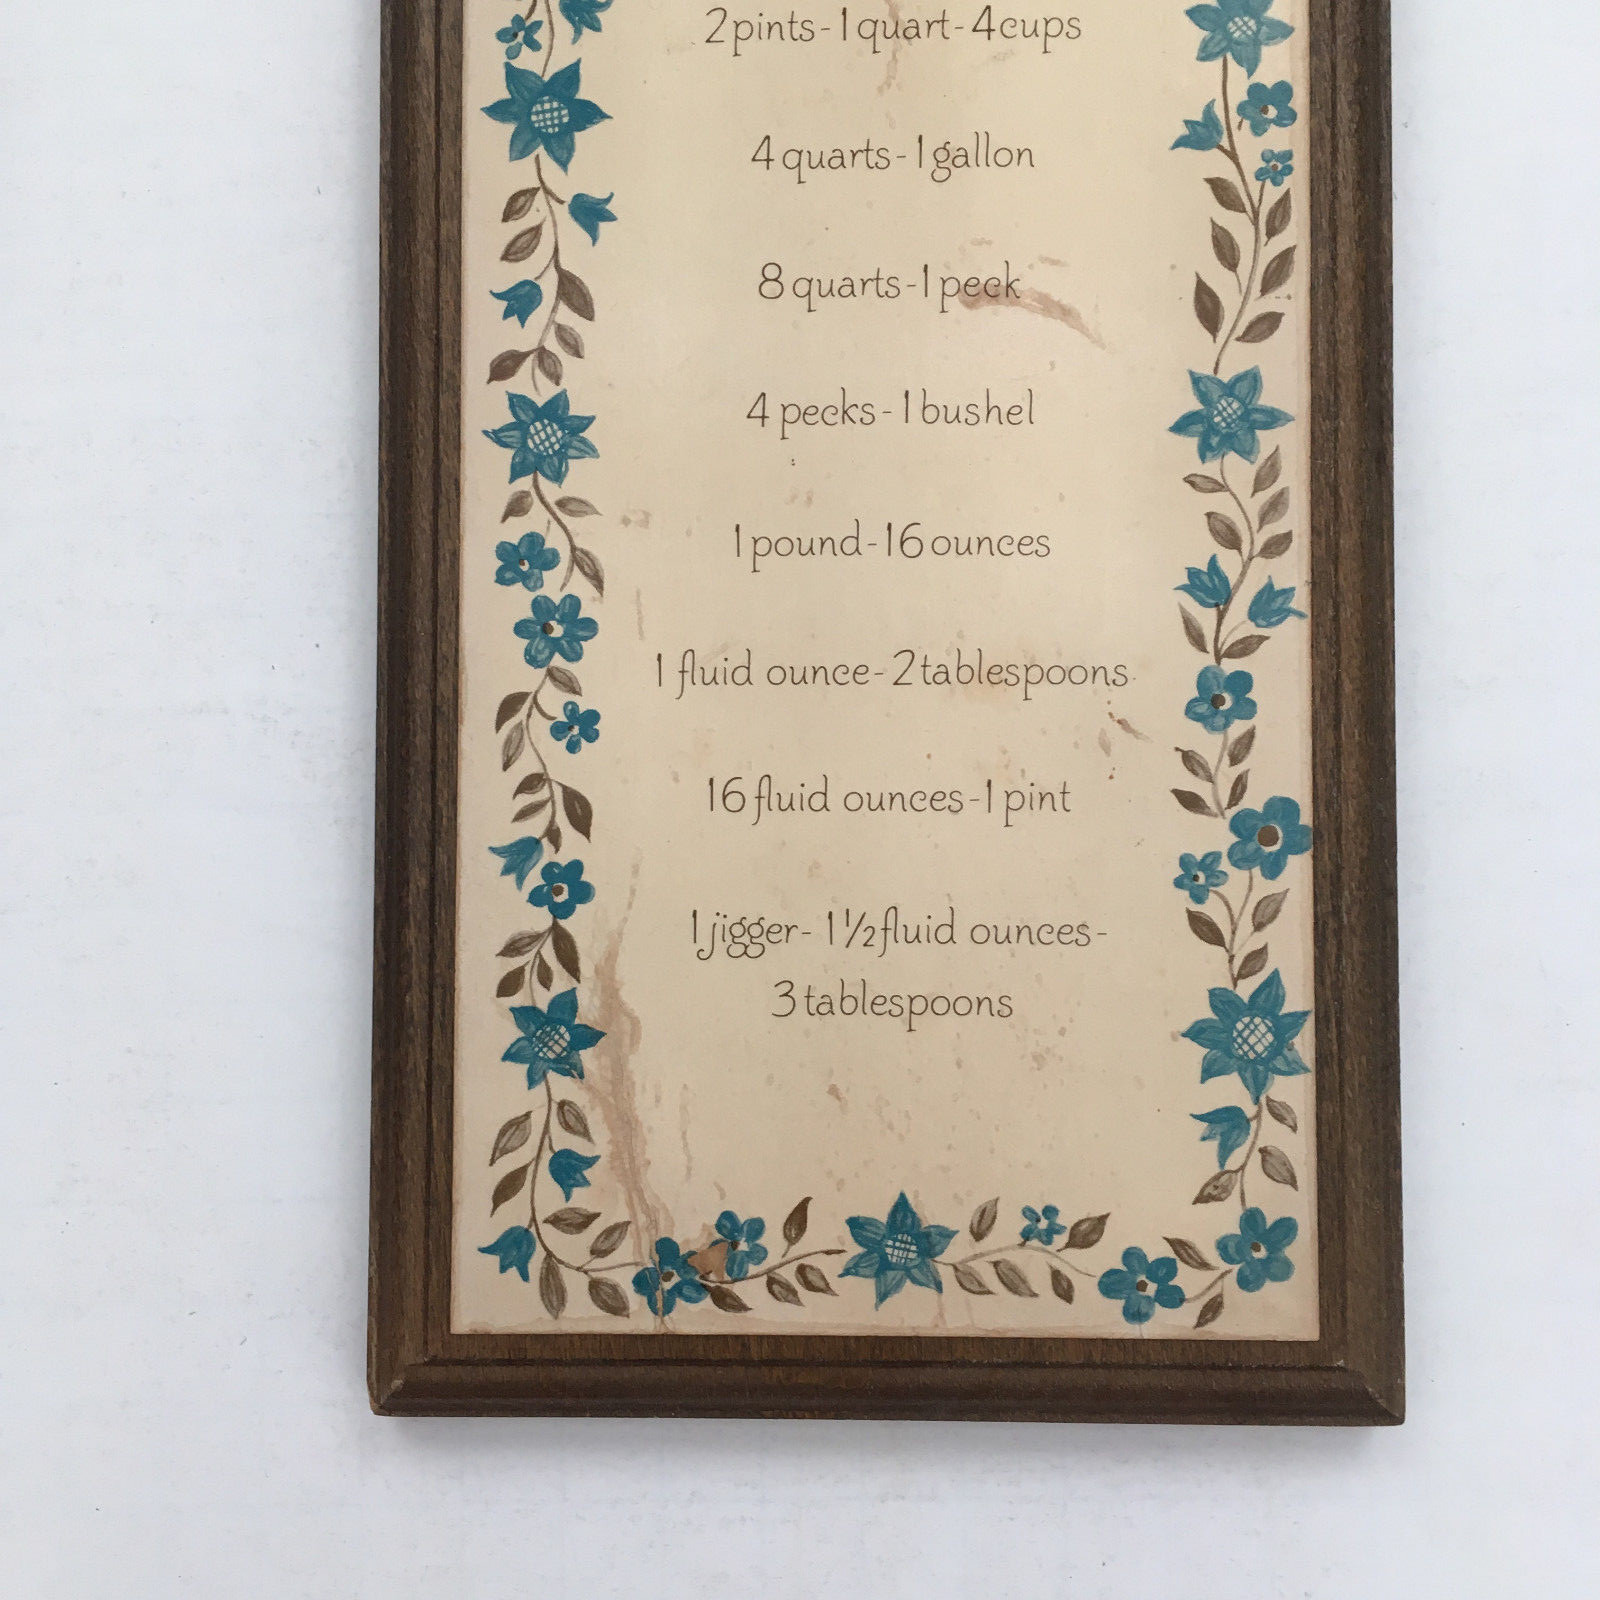 2 pints - 1 quart - 4 cups
4 quarts - 1 gallon
8 quarts - 1 peck
4 pecks - 1 bushel
1 pound - 16 ounces
1 fluid ounce - 2 tablespoons
16 fluid ounces - 1 pint
1 jigger - 1 1/2 fluid ounces -
3 tablespoons